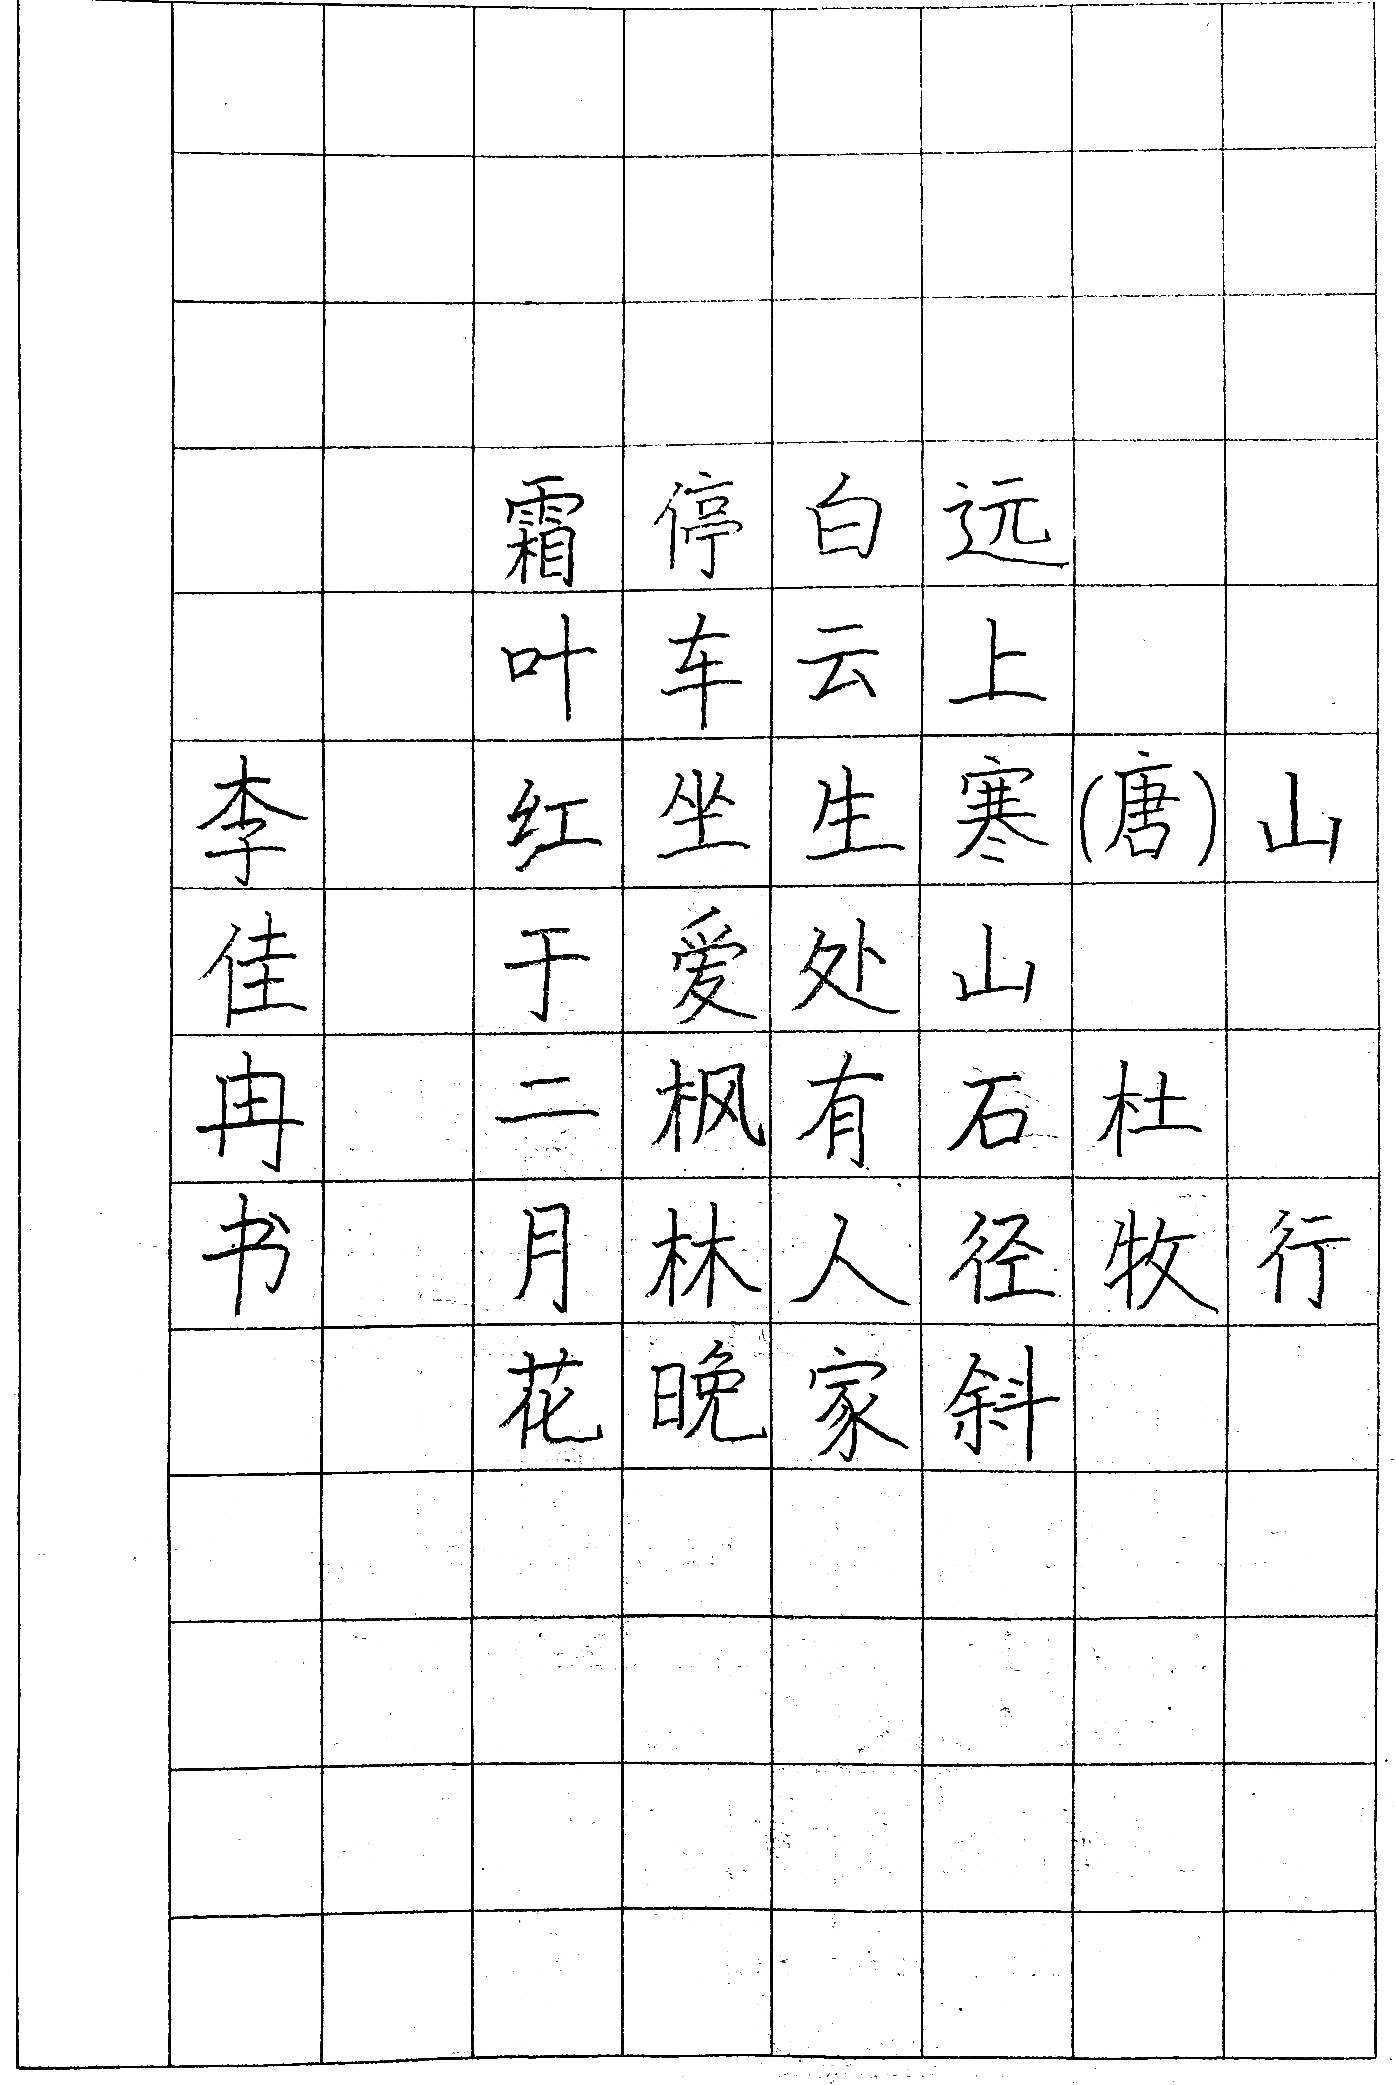 山行
(唐)杜牧
远上寒山石径斜
白云生处有人家
停车坐爱枫林晚
霜叶红于二月花
李佳冉书